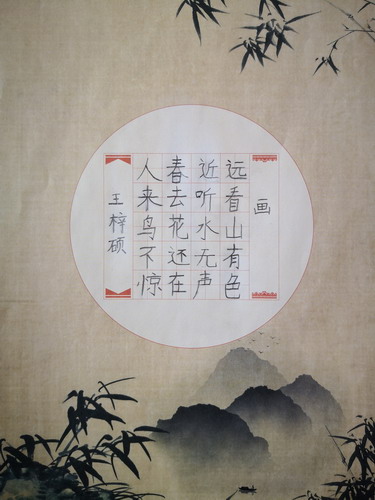 画
远看山有色
近听水无声
春去花还在
人来鸟不惊
王梓硕